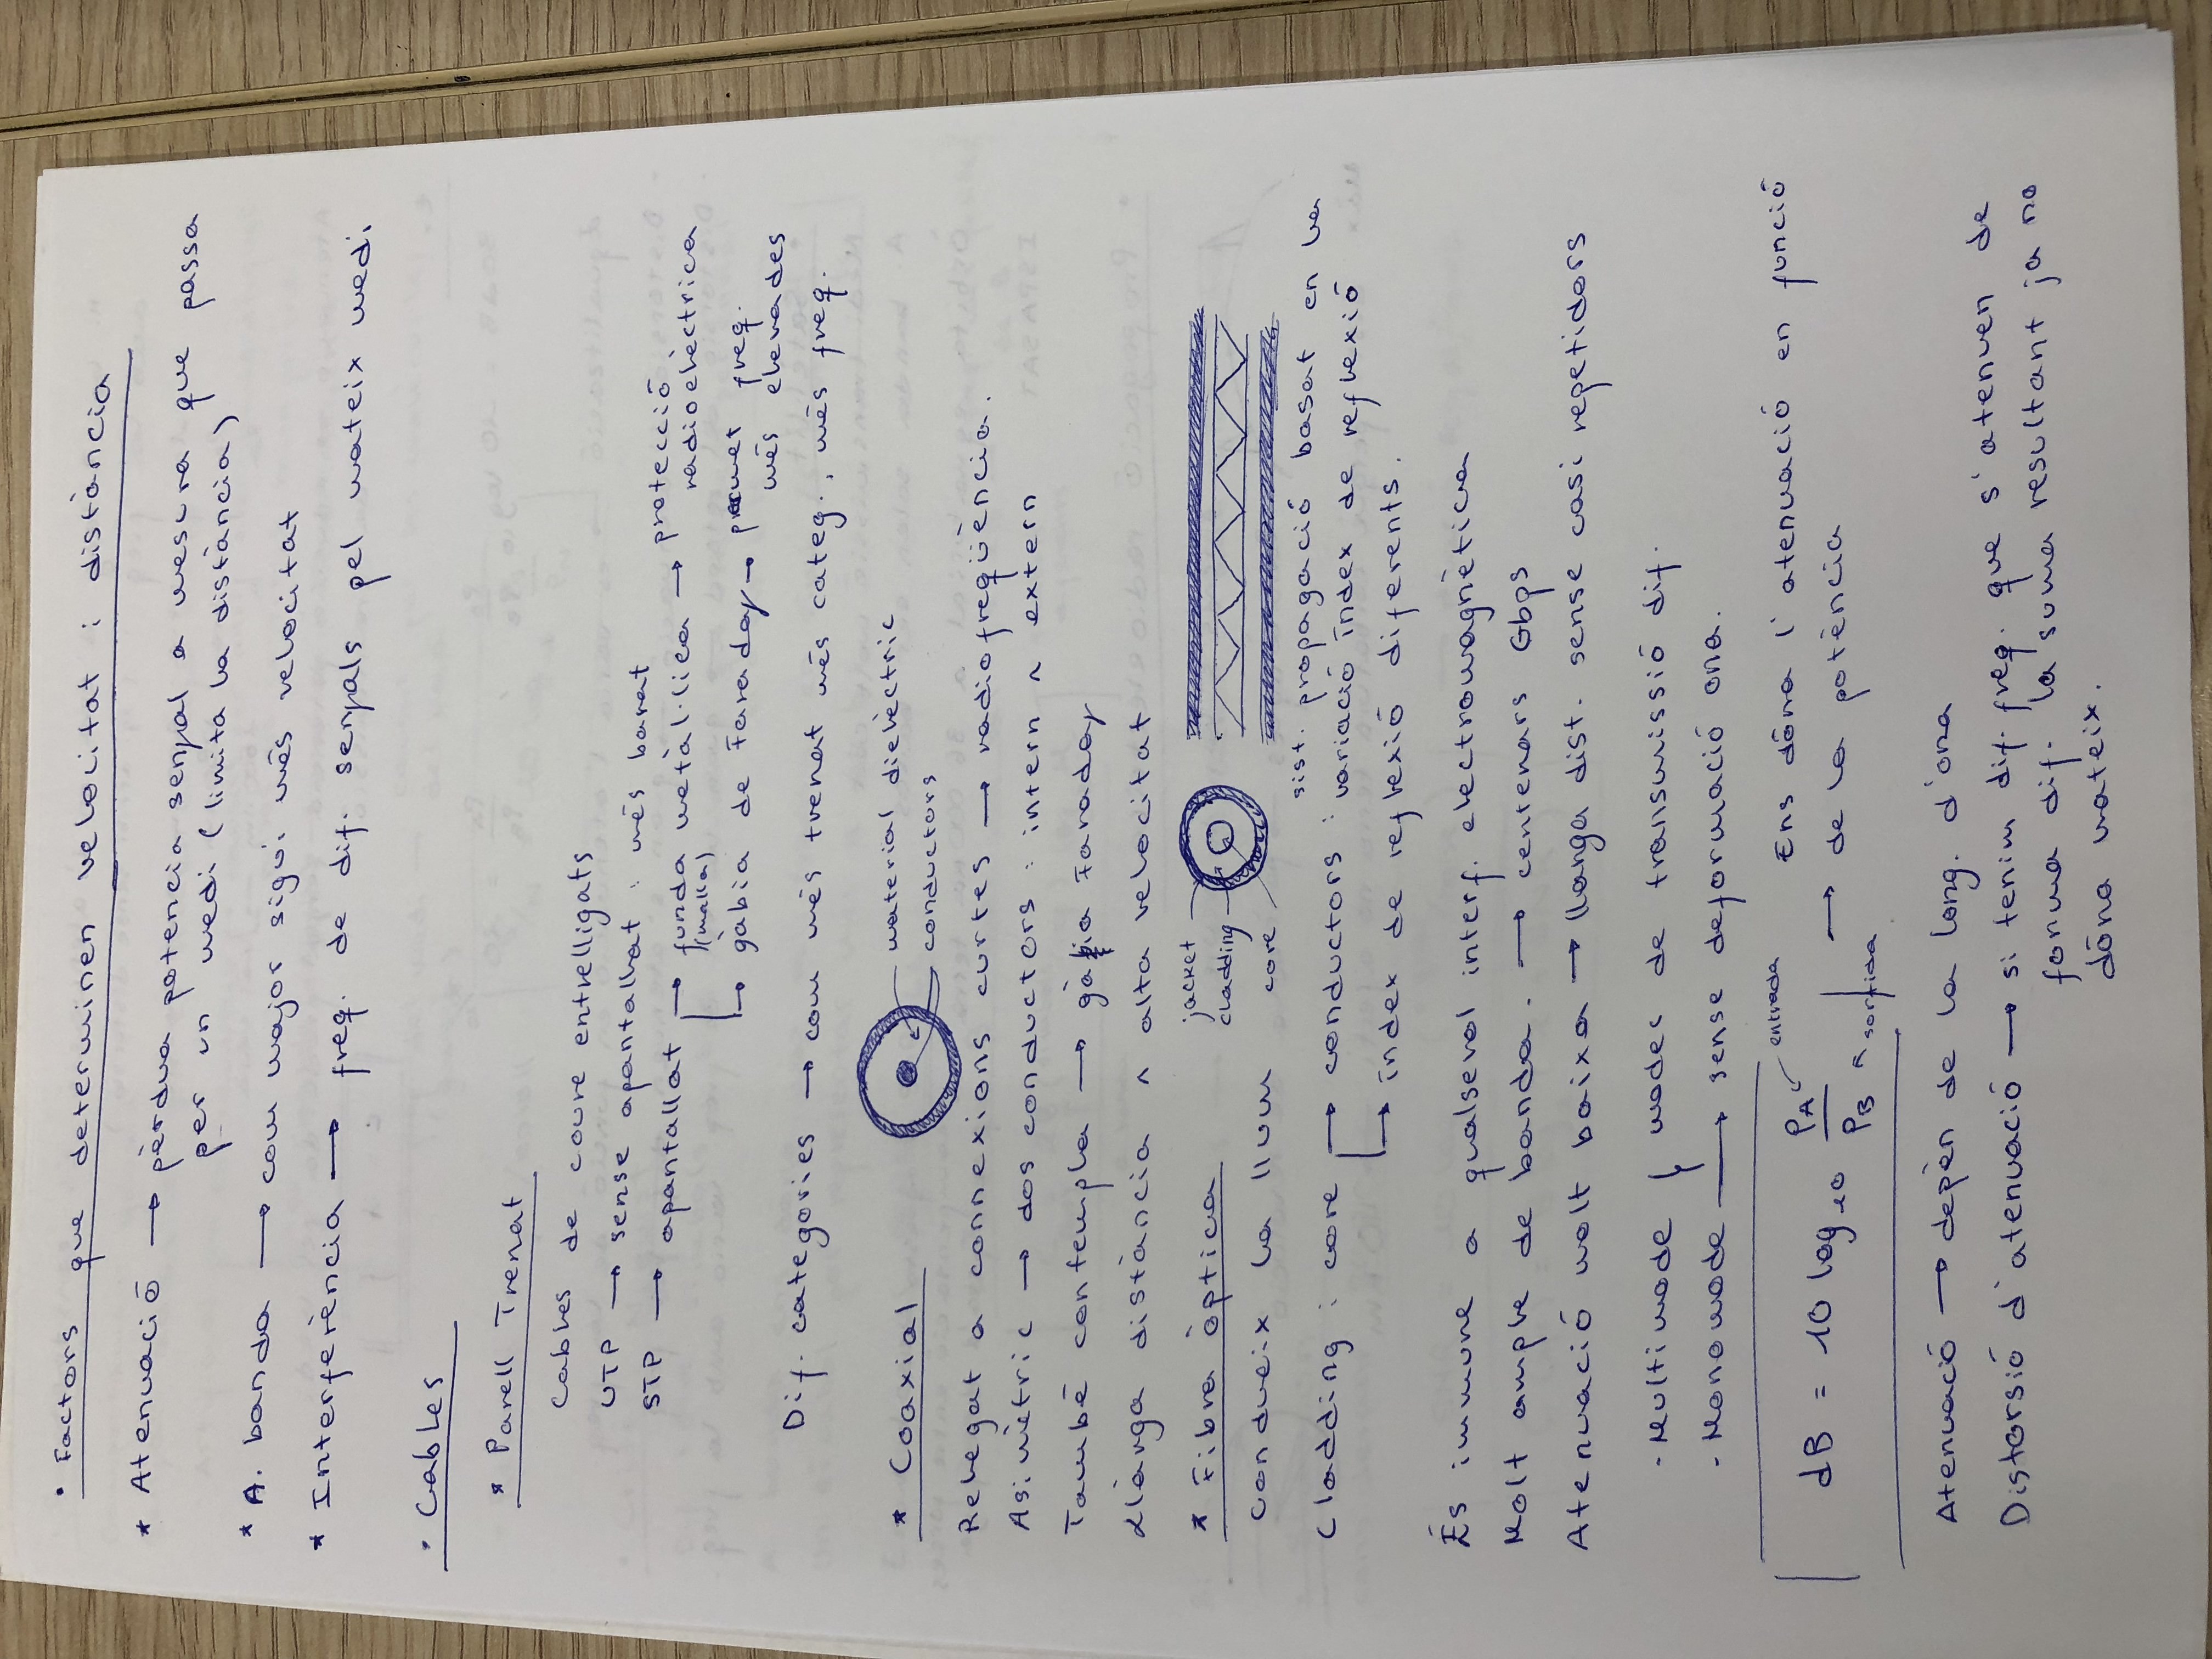 · Factors que determinen velocitat i distància
* Atenuació → pèrdua potencia senyal a mesura que passa
per un medi (limita la distància)
* A. banda → com major sigui més velocitat
* Interferència → freq. de dif. senyals pel mateix medi
· Cables
* Parell Trenat
Cables de coure entrelligats
UTP → sense apantallat : més barat
STP → apantallat → funda metàl·lica → protecció
(malla) radioelèctrica
→ gàbia de Faraday → permet freq.
més elevades
Dif. categories → com més trenat més categ., més freq.
* Coaxial
material dielèctric
conductors
Relegat a connexions curtes → radiofreqüència.
Asimètric → dos conductors : intern ^ extern
També contempla → gàbia Faraday
Llàrga distància ^ alta velocitat
* Fibra òptica
jacket
cladding
core
Condueix la llum
Cladding i core → conductors : sist. propagació basat en la
variació índex de reflexió
→ índex de reflexió diferents.
És immune a qualsevol interf. electromagnètica
Molt ample de banda. → centenars Gbps
Atenuació molt baixa → llarga dist. sense casi repetidors
- Multimode } modes de transmissió dif.
- Monomode → sense deformació ona.
dB = 10 log₁₀ P_A / P_B
entrada
sortida
→ Ens dóna l'atenuació en funció
de la potència
Atenuació → depèn de la long. d'ona
Distorsió d'atenuació → si tenim dif. freq. que s'atenuen de
forma dif. la suma resultant ja no
dóna mateix.